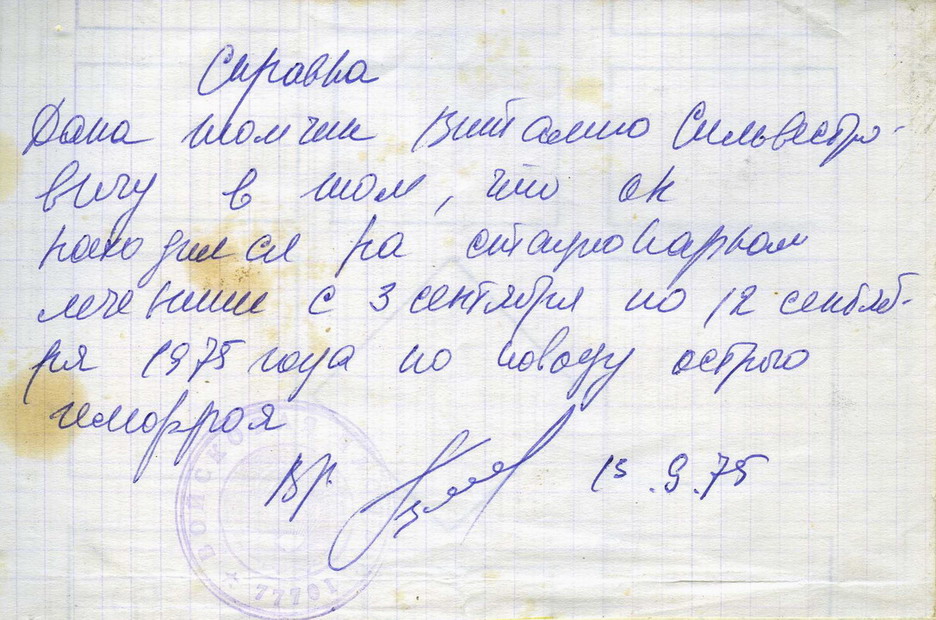 Справка
Дана Томчик Виталию Сильвестро-
вичу в том, что он
находился на стационарном
лечении с 3 сентября по 12 сентяб-
ря 1975 года по поводу острого
геморроя
Вр. 13.9.75
ВОЙСКОВАЯ
77701